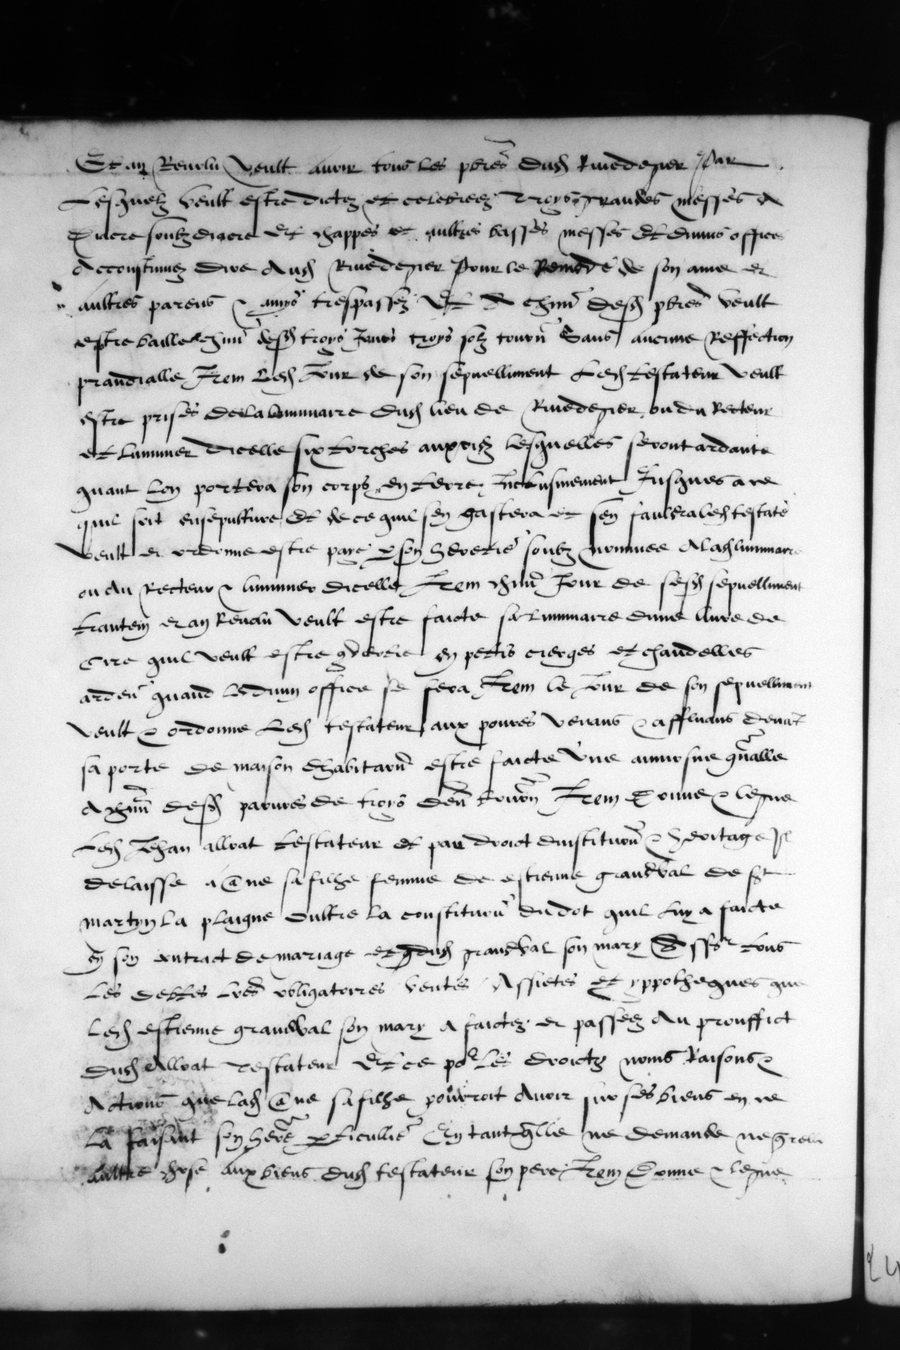 Et an Revolu veult avoir tous les pbres dud Rivedegier Par
Lesquelz veult estre dictez et celebreez troys grandes messes a
Diacre soubzdiacre et chappes et aultres basses messes et divins offices
Accoustumez dire Aud Rivedegier Pour le Remede de son ame et
aultres parens & amys trespassez Et A chun desd pbres veult
estre baille chun desd troys Jours troys solz tourn Sans aucune Reffection
prandialle Item Led Jour de son sepvelliment Led testateur veult
estre prises de la luminaire dud lieu de Rivedegier ou du Recteur
et luminier dicelle six torches lesquelles seront ardante
quant Lon portera son corps en terre Inclusivement Jusques a ce
quil soit ensepulture Et de ce quil sen gastera et sen fauldra led testate
veult et ordonne estre paye p son heretier soubz nomme A lad luminaire
ou Au Recteur & luminier dicelle Item chun Jour de sesd sepvelliment
trantein et an Revolu veult estre faicte sa luminaire dune livre de
Cire quil veult estre en petis cierges et chandelles
arden quand Ledivin office se fera Item le Jour de son sepvelliment
veult & ordonne Led testateur aux povres venans & affluans devant
sa porte de maison dhabitation estre faicte Une aumosne gnalle
A chun desd pauvres de troys den tourn Item Donne & legue
Led Jehan allvat testateur et par droict dinstitution & heritage
delaisse a sa filhe femme de estienne grandval de st
martyn La plaigne Oultre la constitution du dot quil luy a faicte
en son contract de mariage et dud grandval son mary tous
Les debtes obligatoires ventes Assietes et yppotheques que
Led estienne grandval son mary A faictez et passeez Au prouffict
dud Allvat testateur Et ce po Les droictz noms Raisons &
Actions que lad sa filhe pourroit Avoir sur ses biens en ce
La faisant son here pticullie Et tant qlle ne demande ne
aultre chose aux biens dud testateur son pere Item Donne & legue